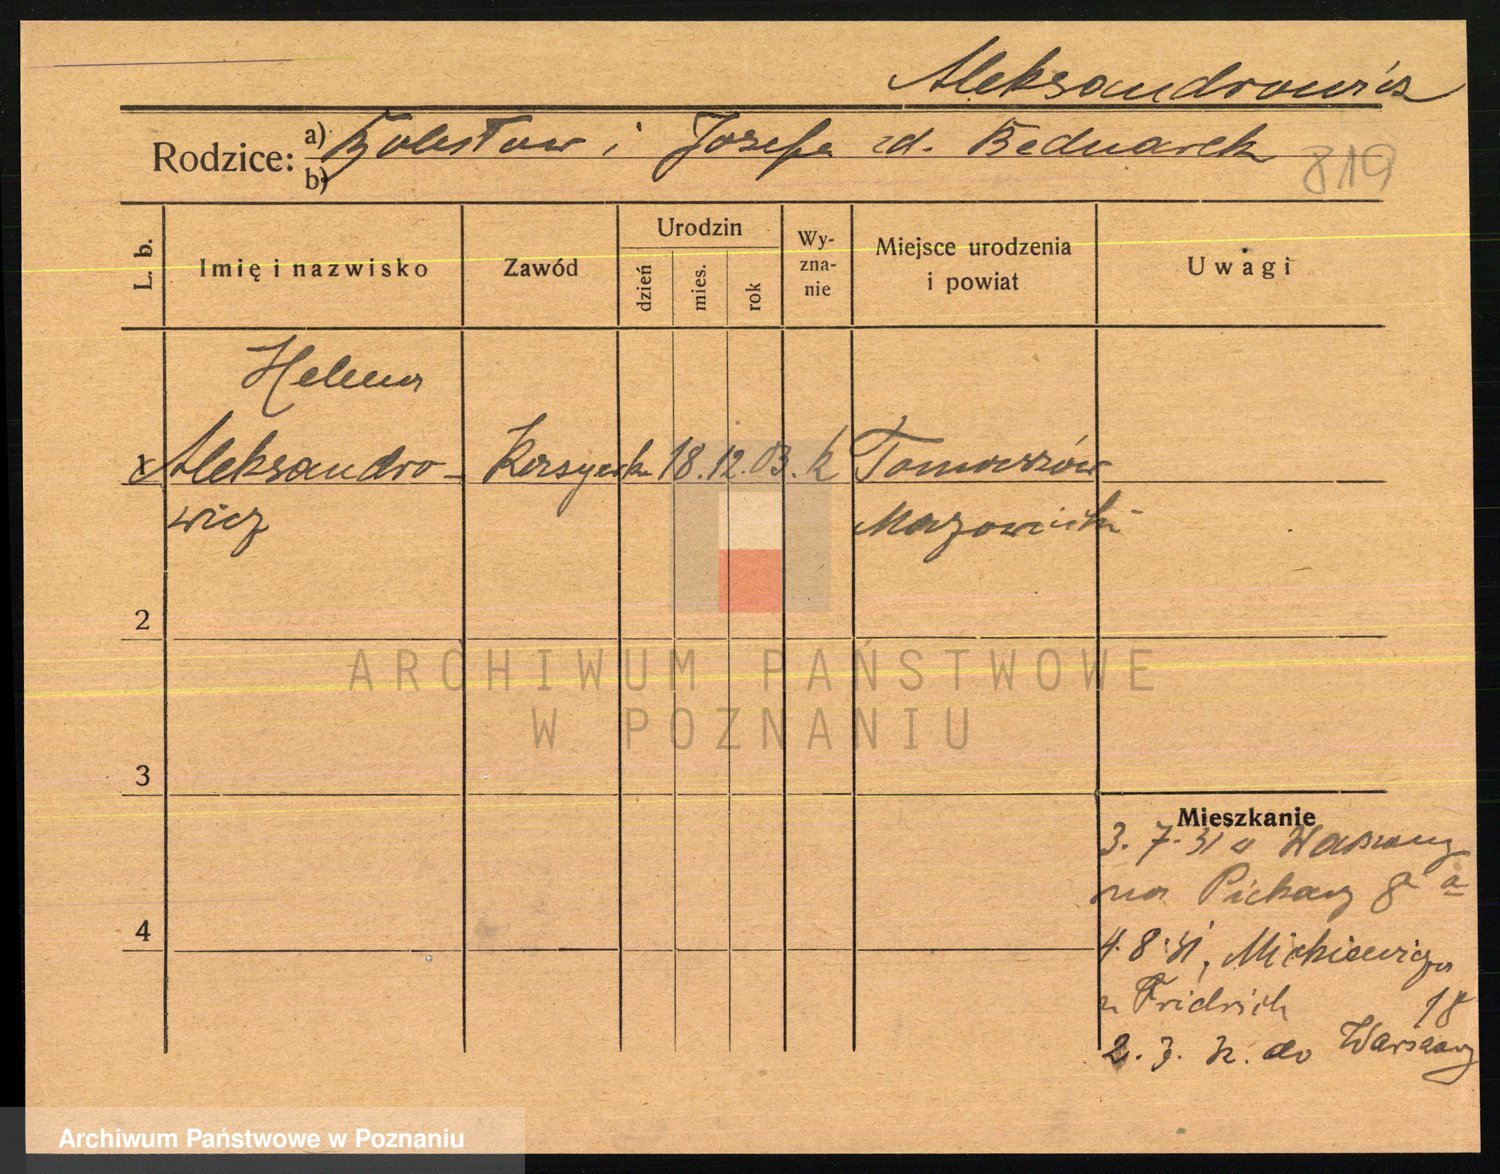 Aleksandrowicz
Rodzice: a) Bolesław i Józefa zd. Bednarek
b)
819
L. b.
Imię i nazwisko
Zawód
Urodzin
dzień
mies.
rok
Wy-
zna-
nie
Miejsce urodzenia
i powiat
Uwagi
Helena
1 Aleksandro- 18. 12. 03. k Tomaszów
wicz Mazowiecki
2
ARCHIWUM PAŃSTWOWE
W POZNANIU
3
Mieszkanie
3. 7. 31 z Warszawy
na Piekary 8a
4. 8. 31, Mickiewicza
u Fridrich 18
2. 3. 32. do Warszawy
4
Archiwum Państwowe w Poznaniu